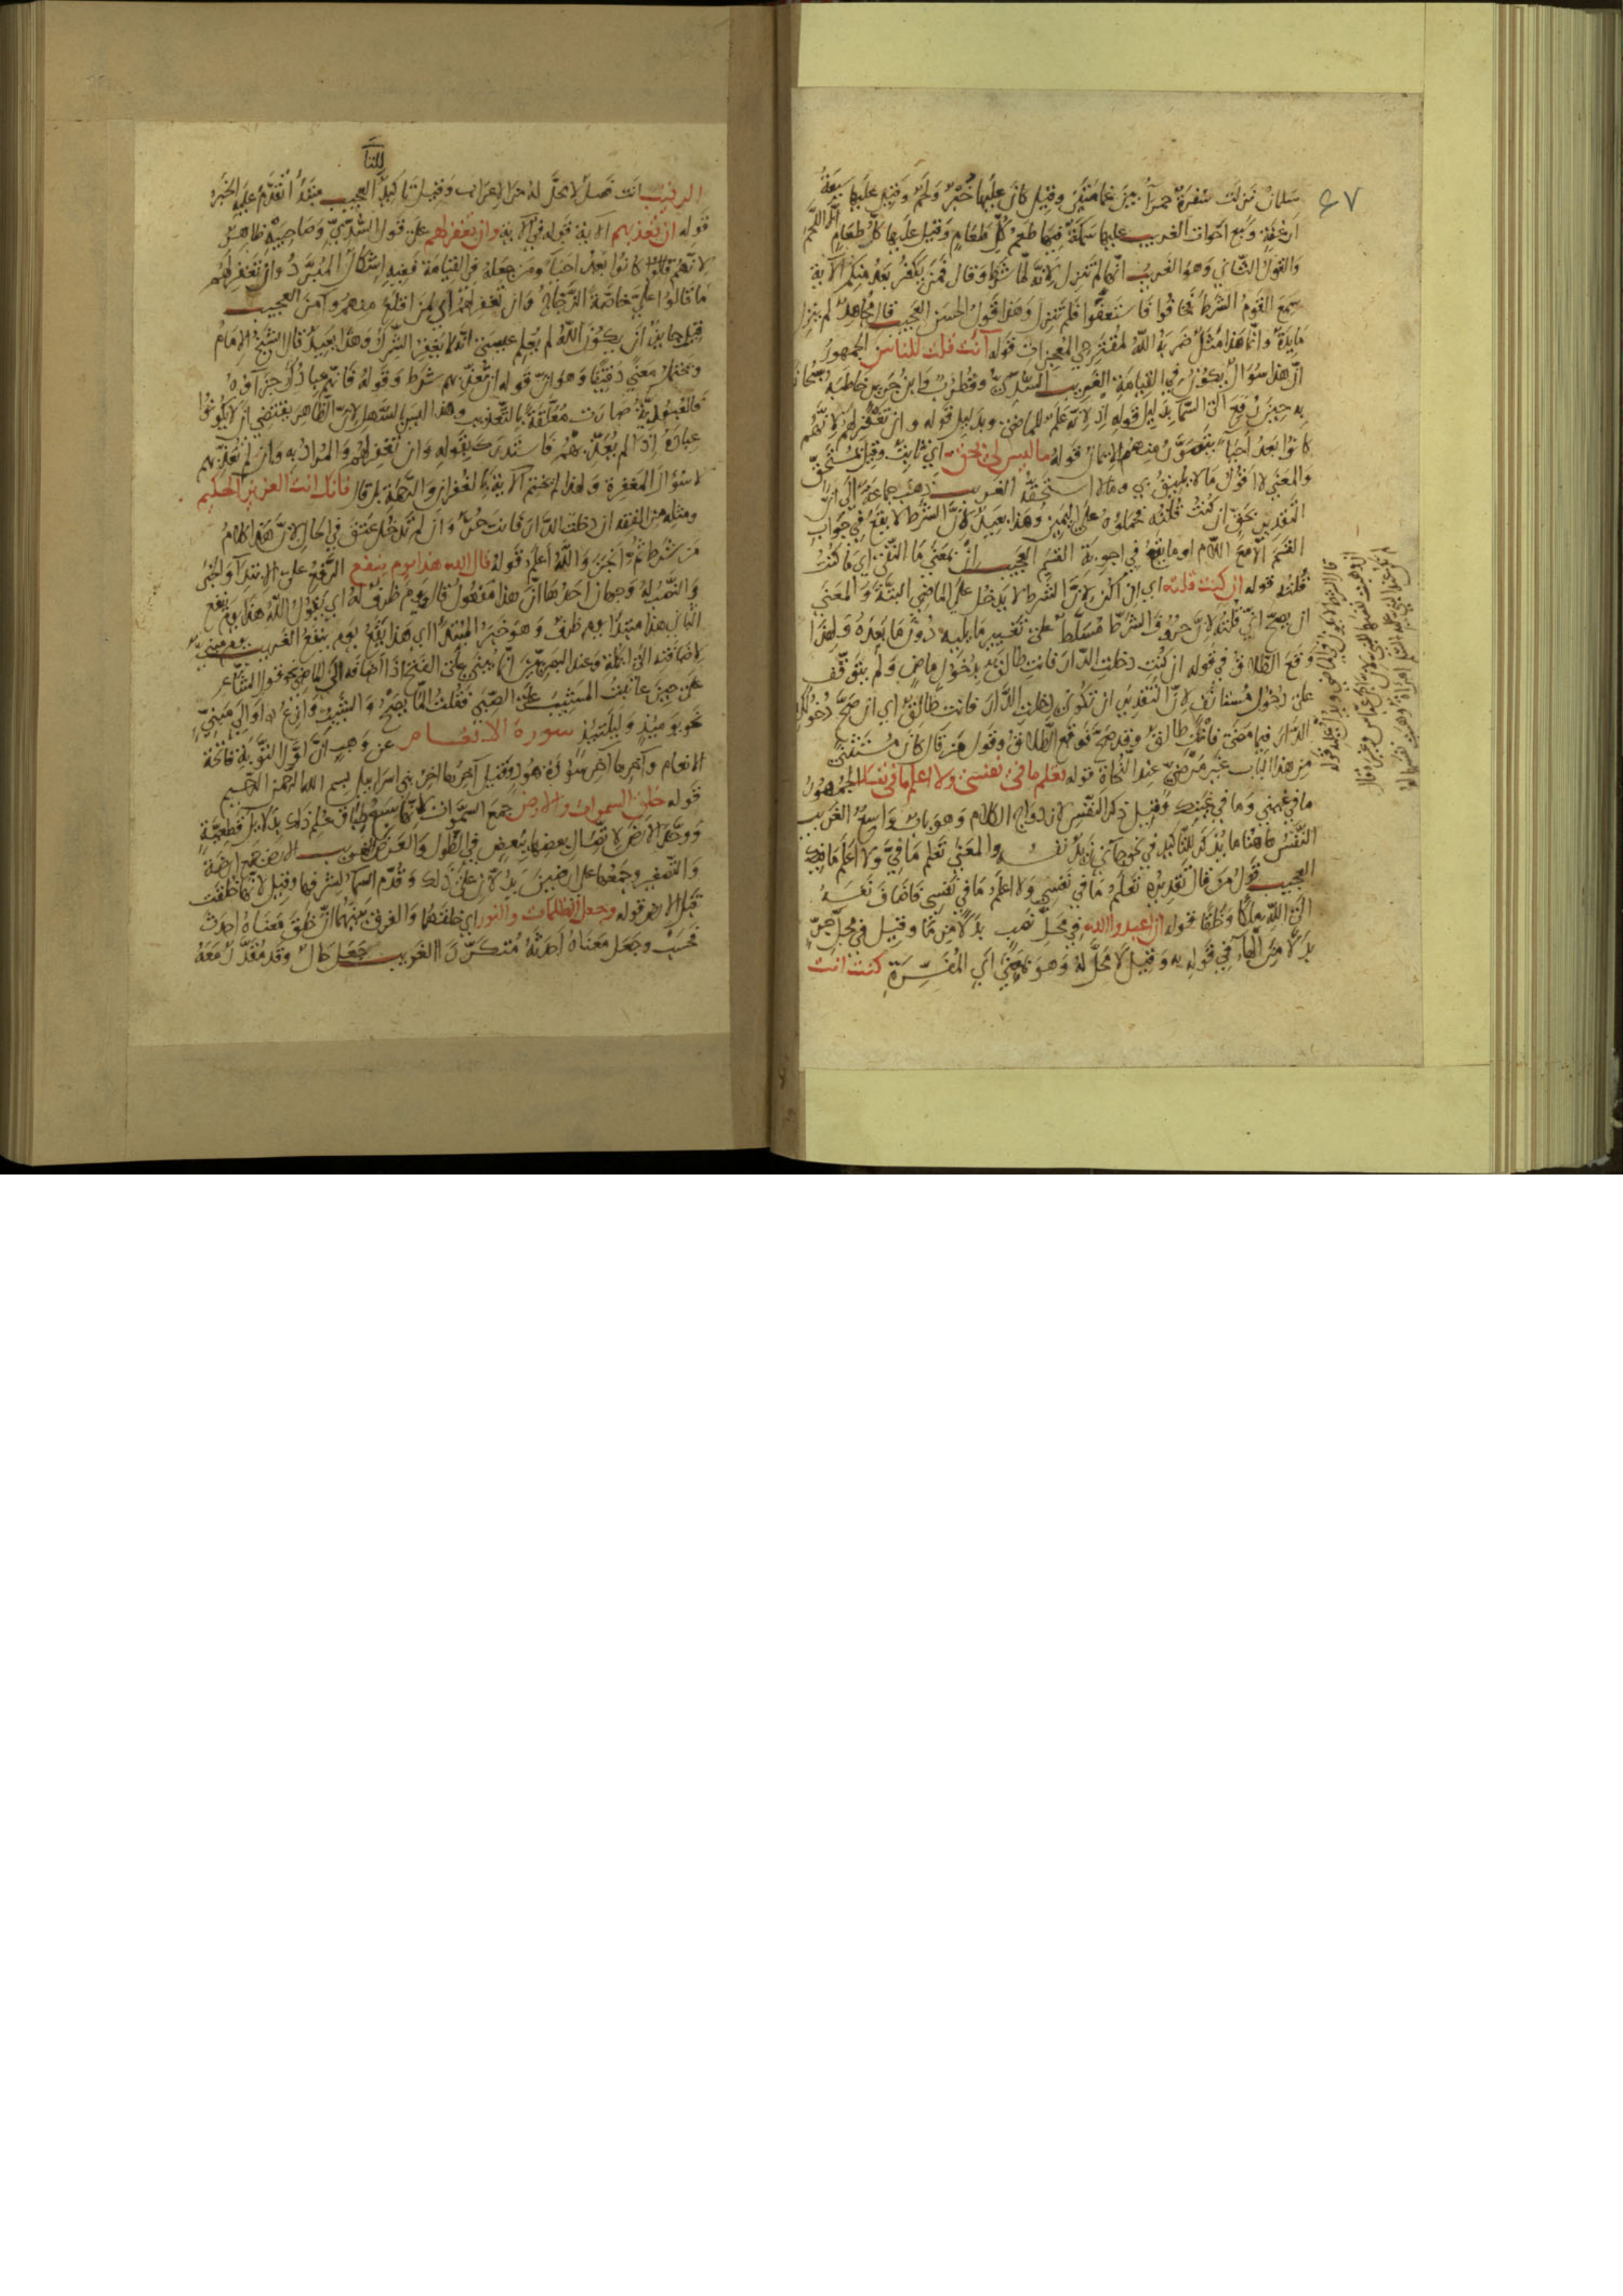 ٤٧
سلمان نزلت سفرة حمراء بين غمامتين وقيل كان عليها خبز ولحم وقيل عليها سبعة
ارغفة وسبع احوات الغريب عليها سمكة فيها طعم كل طعام وقيل عليها كل طعام الا اللحم
والقول الثاني وهو الغريب انها لم تنزل لانه لما شرط وقال فمن يكفر بعد منكم الآية
سمع القوم الشرط فخافوا فاستعفوا فلم تنزل وهذا قول الحسن العجيب قال مجاهد لم ينزل
مايدة وانما هذا مثل ضربه الله لمقترحي المعجزات قوله أأنت قلت للناس الجمهور
ان هذا سؤال يكون في القيامة الغريب السدي وقطرب وابن جرير خاطبه
به حين رفع الى السماء بدليل قوله اذ لانه علم للماضي وبدليل قوله وان تغفر لهم لانهم
كانوا بعد احياء يتصور منهم الايمان قوله ما ليس لي بحق اي ثابت وقيل مستحق
والمعنى لا اقول ما لا يليق بي وما لا استحقه الغريب ذهب جماعة الى ان
التقدير بحق ان كنت قلته فحملوه على اليمين وهذا بعيد لان الشرط لا يقع في جواب
القسم الا مع اللام او ما يقع في اجوبة القسم العجيب ان بمعنى ما النفي اي ما كنت
قلته قوله ان كنت قلته اي ان اكن لان الشرط لا يدخل على الماضي البتة والمعنى
ان يصح اني قلته لان حروف الشرط مسلط على تغيير ما يليه دون ما بعده ولهذا
وقع الطلاق في قوله ان كنت دخلت الدار فانت طالق بدخول ماض ولم يتوقف
على دخول مستأنف لان التقدير ان تكوني دخلت الدار فانت طالق اي ان صح دخولك
الدار فيما مضى فانت طالق وقد صح فوقع الطلاق وقول من قال كان مستثنى
من هذا الباب غير مرضي عند النحاة قوله تعلم ما في نفسي ولا اعلم ما في نفسك الجمهور
ما في غيبي وما في غيبك وقيل ذكر النفس لازدواج الكلام وهو بمات واسعة الغريب
النفس هاهنا ما يذكر للتاكيد في نحو جاءني زيد نفسه والمعنى تعلم ما في ولا اعلم ما فيك
العجيب قول من قال تقديره تعلم ما في نفسي ولا اعلم ما في نفسي فاضاف نفسه
الى الله ملكا وخلقا قوله ان اعبدوا الله في محل نصب بدلا من ما وقيل في محل جر
بدلا من الهاء في قوله به وقيل لا محل له وهو بمعنى اي المفسرة كنت انت
للناس
الرقيب انت فصل لا محل له من الاعراب وقيل تاكيد العجيب مبتدا تقدم عليه الخبر
قوله ان تعذبهم الآية قوله في الآية وان تغفر لهم على قول السدي وصاحبيه ظاهر
لانهم قالوا كانوا بعد احياء ومن جعله في القيامة ففيه اشكال المبرد وان تغفر لهم
ما قالوا علي خاصة الزجاج وان تغفر لهم اي لمن اقلع منهم وآمن العجيب
قيل جايز ان يكون الله لم يعلم عيسى انه لا يغفر الشرك وهذا بعيد قال الشيخ الامام
ويحتمل معنى دقيقا وهو ان قوله ان تعذبهم شرط وقوله فانهم عبادك جزاؤه
فالعبودية صارت معلقة بالتعذيب وهذا ليس بالسهل لان الظاهر يقتضي ان لا يكونوا
عباده اذا لم يعذبهم فاستدرك بقوله وان تغفر لهم والمراد به وان لم تعذبهم
لا سؤال المغفرة ولهذا لم يختم الآية بالغفران والرحمة بل قال فانك انت العزيز الحكيم
ومثله من الفقه ان دخلت الدار فانت حر وان لم تدخل عتق في الحال لان هذا كلام
من شرط ثم انجز والله اعلم قوله قال الله هذا يوم ينفع الرفع على الابتداء والخبر
والنصب له وجهان احدهما ان هذا مفعول قال ويوم ظرف له اي يقول الله هذا يوم ينفع
الثاني هذا مبتدا يوم ظرف وهو خبر المبتدا اي هذا يقع يوم ينفع الغريب يوم مبني
لاضافته الى الجملة وعند البصريين انما يبنى على الفتح اذا اضافه الى الماضي نحو قول الشاعر
على حين عاتبت المشيب على الصبى فقلت الما يصح والشيب وازع او الى مبني
نحو يوميذ وليلتيذ سورة الانعام عن وهب ان اول التورية فاتحة
الانعام وآخرها آخر سورة هود وقيل آخرها آخر بني اسراييل بسم الله الرحمن الرحيم
قوله خلق السموات والارض جمع السموات لانها سبع طباق علم ذلك بدلايل قطعية
ووحد الارض لاتصال بعضها ببعض في الطول والعرض الغريب الارض جمع ارضة
والتصغير وجمعها على ارضين يدلان على ذلك وقدم السماء لشرفها وقيل لانها خلقت
قبل الارض قوله وجعل الظلمات والنور اي خلقهما والفرق بينهما ان خلق معناه احدث
فحسب وجعل معناه احدثه متكررا الغريب جعل حال وقد مقدر معه